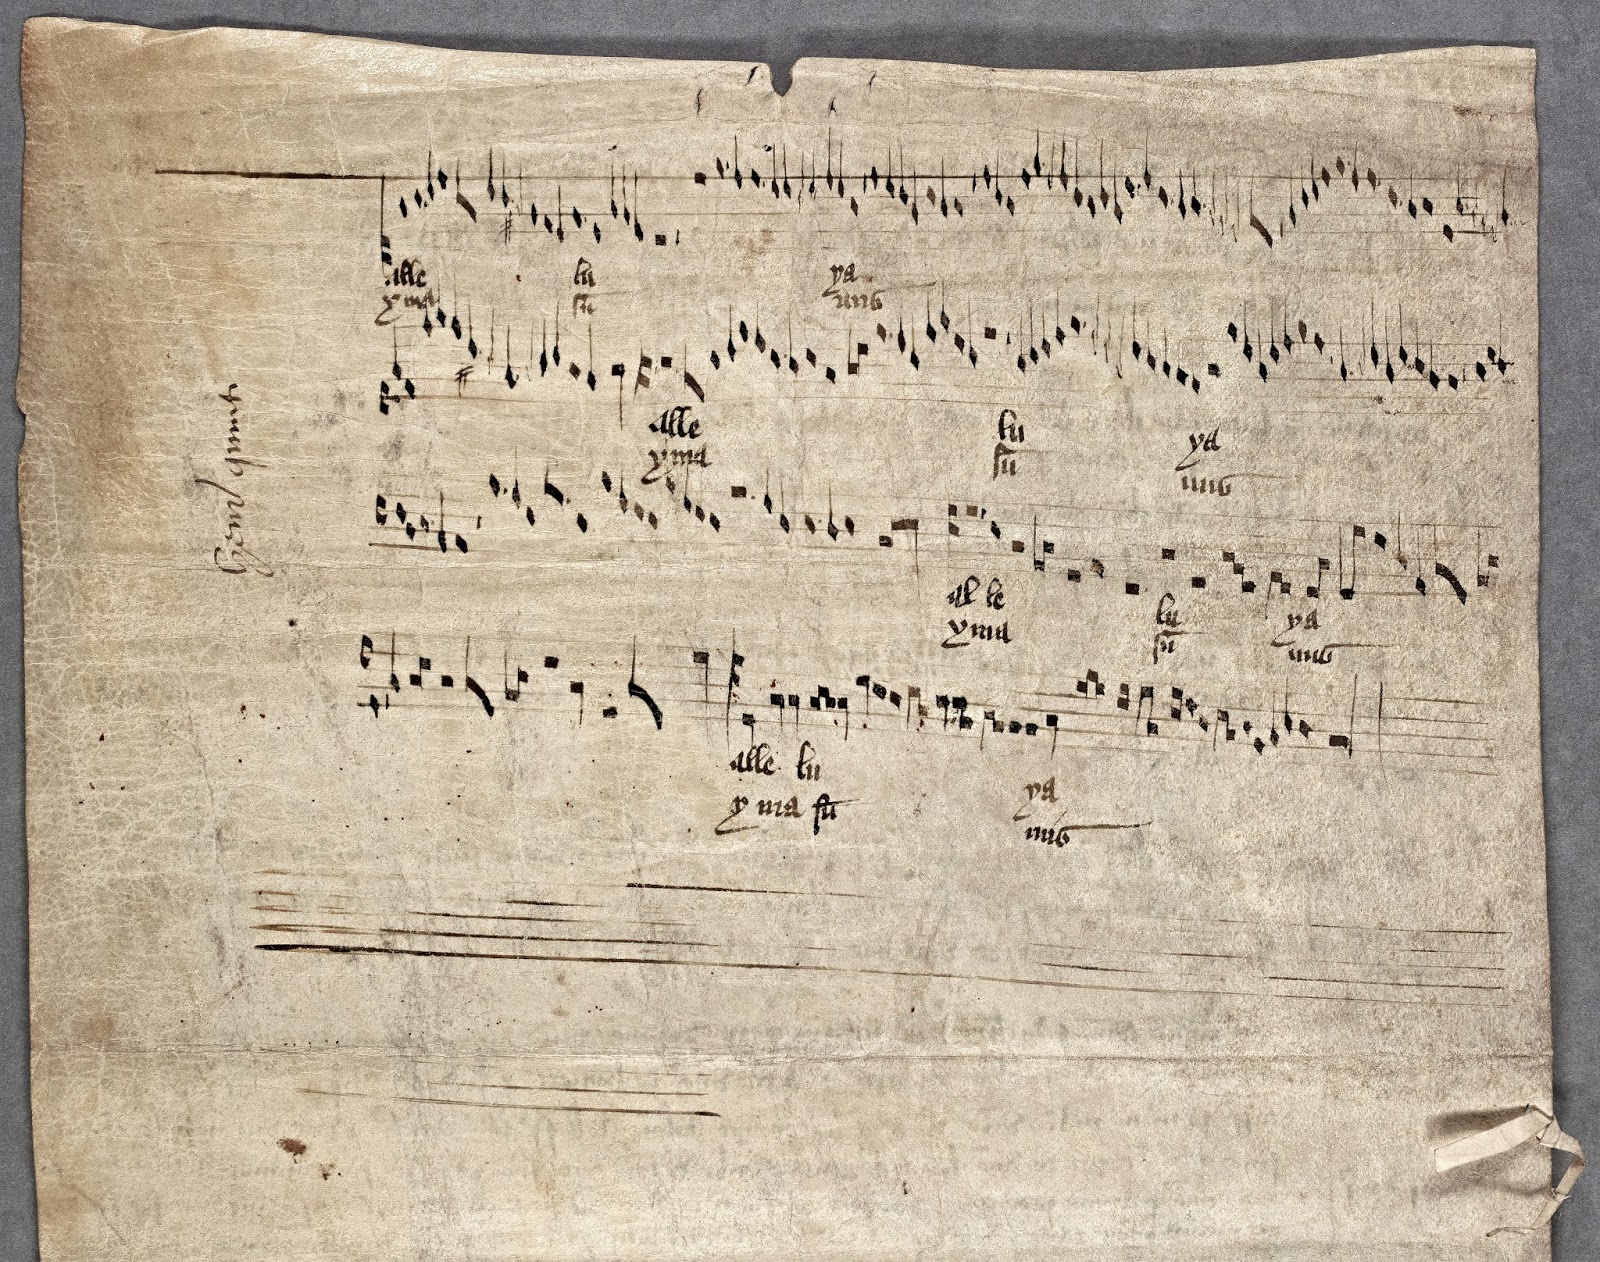 alle lu ya
yma sū nus
alle lu ya
yma sū nus
al le lu ya
yma sū nus
alle lu ya
y ma sū nus